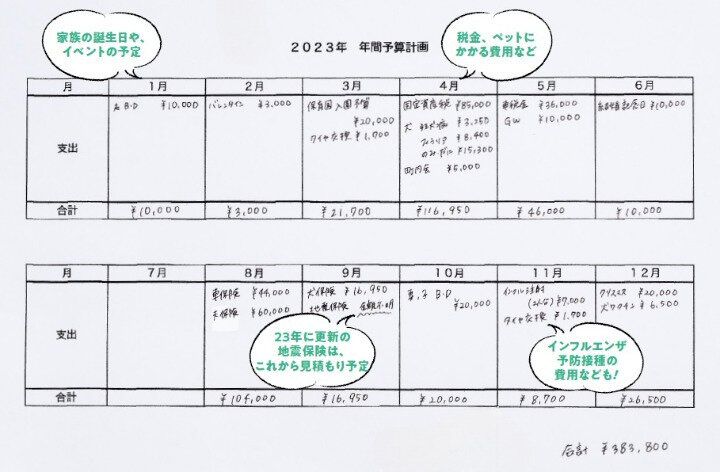 家族の誕生日や、
イベントの予定
税金、ペットに
かかる費用など
2023年 年間予算計画
月 1月 2月 3月 4月 5月 6月
支出
B・D ¥10,000
バレンタイン ¥3,000
保育園入園準備
¥20,000
タイヤ交換 ¥1,700
固定資産税 ¥85,000
犬 狂犬病 ¥3,250
フィラリア ¥8,400
のみ・だに ¥15,300
町内会 ¥5,000
車税金 ¥36,000
GW ¥10,000
結婚記念日 ¥10,000
合計 ¥10,000 ¥3,000 ¥21,700 ¥116,950 ¥46,000 ¥10,000
月 7月 8月 9月 10月 11月 12月
支出
車保険 ¥44,000
保険 ¥60,000
犬保険 ¥16,950
地震保険 金額不明
子 B・D
¥20,000
インフル注射
¥7,000
タイヤ交換 ¥1,700
クリスマス ¥20,000
犬ワクチン ¥6,500
23年に更新の
地震保険は、
これから見積もり予定
インフルエンザ
予防接種の
費用なども!
合計 ¥104,000 ¥16,950 ¥20,000 ¥8,700 ¥26,500
合計 ¥383,800